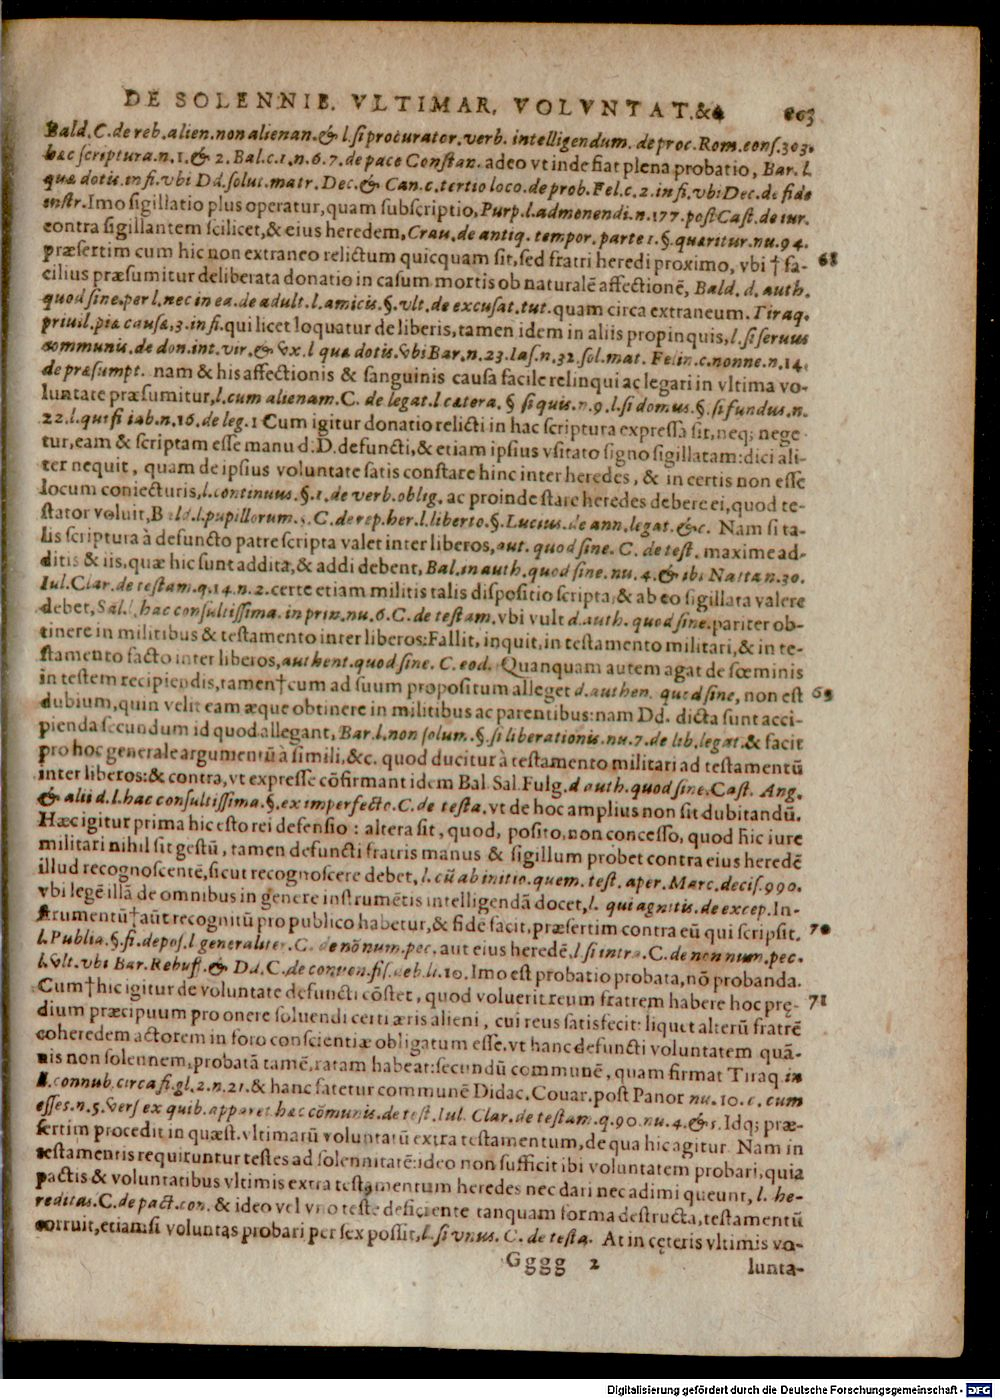 DE SOLENNIB. VLTIMAR. VOLVNTAT.&c. 603
Bald. C. de reb. alien. non alienan. & l. si procurator. verb. intelligendum. de proc. Rom. cons. 303.
hac scriptura. n. 1. & 2. Bal. c. 1. n. 6. 7. de pace Constan. adeo vt inde fiat plena probatio, Bar. l.
quæ dotis. in fi. vbi Dd. solut. matr. Dec. & Can. c. tertio loco. de prob. Fel. c. 2. in fi. vbi Dec. de fide
instr. Imo sigillatio plus operatur, quam subscriptio, Purp. l. admonendi. n. 177. post Cast. de iur.
contra sigillantem scilicet, & eius heredem, Crau. de antiq. tempor. parte 1. §. quæritur. nu. 94.
præsertim cum hic non extraneo relictum quicquam sit, sed fratri heredi proximo, vbi † fa- 68
cilius præsumitur deliberata donatio in casum mortis ob naturalē affectionē, Bald. d. auth.
quod sine. per l. nec in ea. de adult. l. amicis. §. vlt. de excusat. tut. quam circa extraneum. Tiraq.
priuil. piæ causæ, 3. in fi. qui licet loquatur de liberis, tamen idem in aliis propinquis, l. si seruus
communis. de don. int. vir. & vx. l quæ dotis. vbi Bar. n. 23. Ias. n. 32. sol. mat. Felin. c. nonne. n. 14.
de præsumpt. nam & his affectionis & sanguinis causa facile relinqui ac legari in vltima vo-
luntate præsumitur, l. cum alienam. C. de legat. l cætera. § si quis. n. 9. l. si domus. §. si fundus. n.
22. l. qui filiab. n. 16. de leg. 1 Cum igitur donatio relicti in hac scriptura expressa sit, neq; nege-
tur, eam & scriptam esse manu d. D. defuncti, & etiam ipsius vsitato signo sigillatam: dici ali-
ter nequit, quam de ipsius voluntate satis constare hinc inter heredes, & in certis non esse
locum coniecturis, l. continuus. §. 1. de verb. oblig. ac proinde stare heredes debere ei, quod te-
stator voluit, Bald. l. pupillorum. C. de rep. her. l. liberto. §. Lucius. de ann. legat. &c. Nam si ta-
lis scriptura à defuncto patre scripta valet inter liberos, aut. quod sine. C. de test. maxime ad-
ditis & iis, quæ hic sunt addita, & addi debent, Bal. in auth. quod sine. nu. 4. & ibi Natta n. 30.
Iul. Clar. de testam. q. 14. n. 2. certe etiam militis talis dispositio scripta, & ab eo sigillata valere
debet, Sal. l. hac consultissima. in prin. nu. 6. C. de testam. vbi vult d. auth. quod sine. pariter ob-
tinere in militibus & testamento inter liberos: Fallit, inquit, in testamento militari, & in te-
stamento facto inter liberos, authent. quod sine. C. eod. Quanquam autem agat de fœminis
in testem recipiendis, tamen † cum ad suum propositum alleget d. authen. quod sine, non est 69
dubium, quin velit eam æque obtinere in militibus ac parentibus: nam Dd. dicta sunt acci-
pienda secundum id quod allegant, Bar. l. non solum. §. si liberationis. nu. 7. de lib. legat. & facit
pro hoc generale argumentū à simili, &c. quod ducitur à testamento militari ad testamentū
inter liberos: & contra, vt expresse cōfirmant idem Bal. Sal. Fulg. d auth. quod sine. Cast. Ang.
& alii d. l. hac consultissima. §. ex imperfecto. C. de testa. vt de hoc amplius non sit dubitandū.
Hæc igitur prima hic esto rei defensio: altera sit, quod, posito, non concesso, quod hic iure
militari nihil sit gestū, tamen defuncti fratris manus & sigillum probet contra eius heredē
illud recognoscentē, sicut recognoscere debet, l. cū ab initio. quem. test. aper. Marc. decis. 990.
vbi legē illā de omnibus in genere instrumētis intelligendā docet, l. qui agnitis. de excep. In-
strumentū † aūt recognitū pro publico habetur, & fidē facit, præsertim contra eū qui scripsit. 70
l. Publia. §. fi. depos. l generaliter. C. de nō num. pec. aut eius heredē, l. si intra. C. de non num. pec.
l. vlt. vbi Bar. Rebuff. & Dd. C. de conuen. fis. deb. li. 10. Imo est probatio probata, nō probanda.
Cum † hic igitur de voluntate defuncti cōstet, quod voluerit reum fratrem habere hoc prę- 71
dium præcipuum pro onere soluendi certi æris alieni, cui reus satisfecit: liquet alterū fratrē
coheredem actorem in foro conscientiæ obligatum esse, vt hanc defuncti voluntatem quā-
uis non solennem, probatā tamē, ratam habeat: secundū communē, quam firmat Tiraq. in
l. connub. circa fi. gl. 2. n. 21. & hanc fatetur communē Didac. Couar. post Panor nu. 10. c. cum
esses. n. 5. vers ex quib. apparet hac cōmunis. de test. Iul. Clar. de testam. q. 90. nu. 4. & 5. Idq; præ-
sertim procedit in quæst. vltimarū voluntatū extra testamentum, de qua hic agitur. Nam in
testamentis requiruntur testes ad solennitatē: ideo non sufficit ibi voluntatem probari, quia
pactis & voluntatibus vltimis extra testamentum heredes nec dari nec adimi queunt, l. he-
reditas. C. de pact. con. & ideo vel vno teste deficiente tanquam forma destructa, testamentū
corruit, etiamsi voluntas probari per sex possit, l. si vnus. C. de testa. At in cęteris vltimis vo-
Gggg 2 lunta-
Digitalisierung gefördert durch die Deutsche Forschungsgemeinschaft - DFG